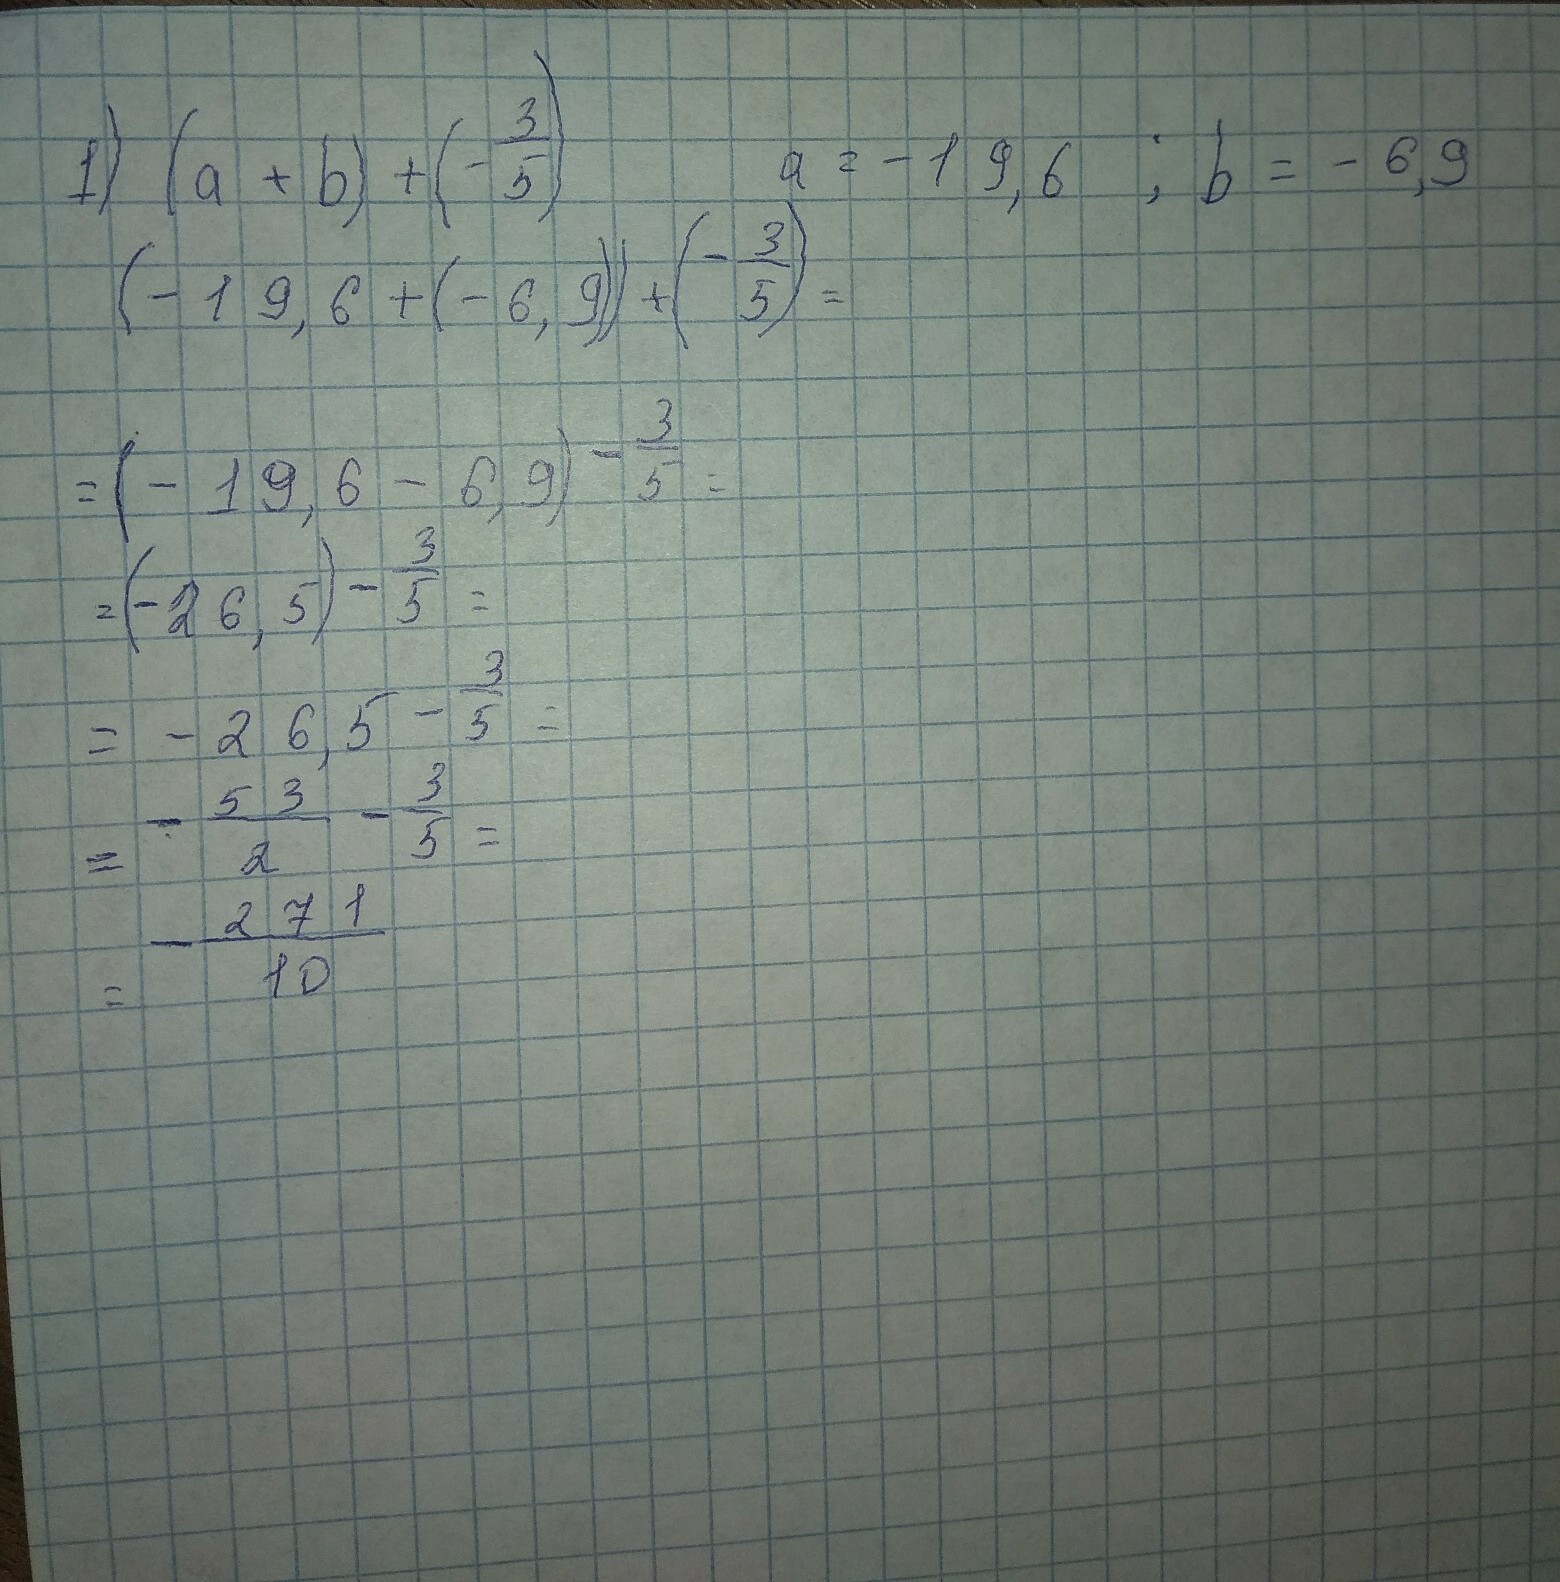 1) (a + b) + (- 3/5)   a = - 19,6 ; b = - 6,9
(- 19,6 + (- 6,9)) + (- 3/5) =
= (- 19,6 - 6,9) - 3/5 =
= (- 26,5) - 3/5 =
= - 26,5 - 3/5 =
= - 53/2 - 3/5 =
= - 271/10